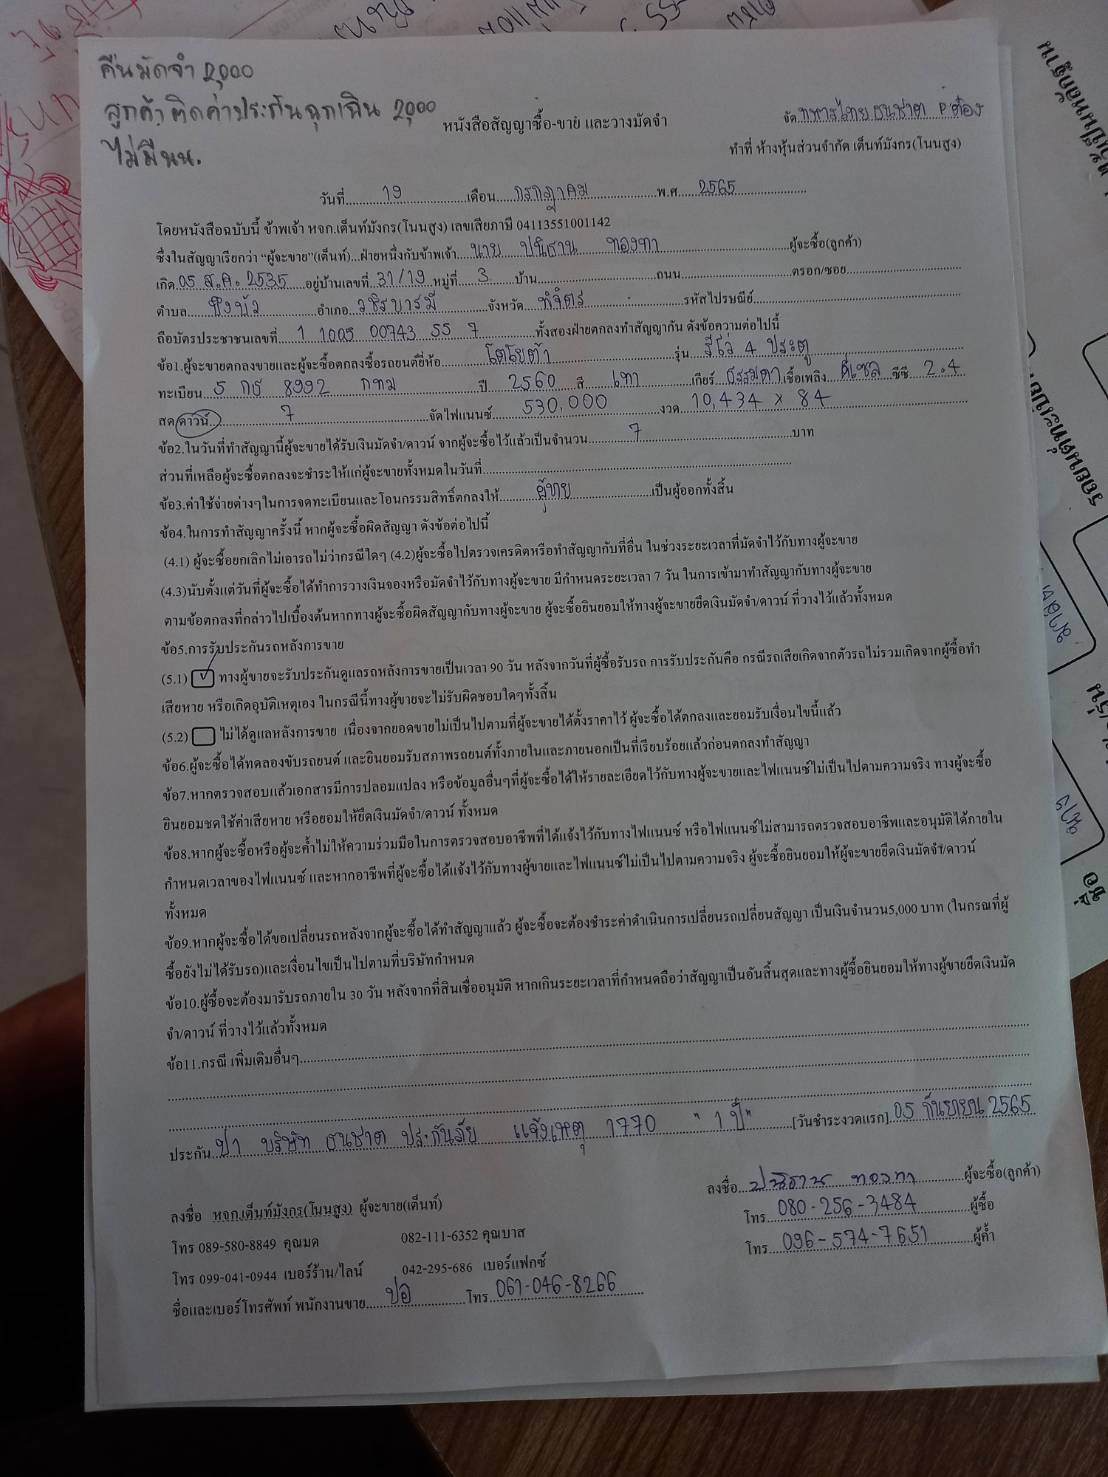 คืนมัดจำ 2,000
ลูกค้า ติดค่าประกันฉุกเฉิน 2,000
ไม่มี นน.
หนังสือสัญญาซื้อ-ขาย และวางมัดจำ
จัด ทหารไทยธนชาต P ต๋อง
ทำที่ ห้างหุ้นส่วนจำกัด เต็นท์มังกร(โนนสูง)
วันที่ 19 เดือน กรกฎาคม พ.ศ. 2565
โดยหนังสือฉบับนี้ ข้าพเจ้า หจก.เต็นท์มังกร(โนนสูง) เลขเสียภาษี 04113551001142
ซึ่งในสัญญาเรียกว่า “ผู้จะขาย”(เต็นท์)...ฝ่ายหนึ่งกับข้าพเจ้า นาย ปนิธาน ทองทา ผู้จะซื้อ(ลูกค้า)
เกิด 05 ส.ค. 2535 อยู่บ้านเลขที่ 31/19 หมู่ที่ 3 บ้าน ถนน ตรอก/ซอย
ตำบล บึงบัว อำเภอ วชิรบารมี จังหวัด พิจิตร รหัสไปรษณีย์
ถือบัตรประชาชนเลขที่ 1 1005 00743 55 7 ทั้งสองฝ่ายตกลงทำสัญญากัน ดังข้อความต่อไปนี้
ข้อ1.ผู้จะขายตกลงขายและผู้จะซื้อตกลงซื้อรถยนต์ยี่ห้อ โตโยต้า รุ่น รีโว่ 4 ประตู
ทะเบียน 5 กธ 8992 กทม ปี 2560 สี เทา เกียร์ ธรรมดา เชื้อเพลิง ดีเซล ซีซี 2.4
สด/ดาวน์ 7 จัดไฟแนนซ์ 530,000 งวด 10,434 x 84
ข้อ2.ในวันที่ทำสัญญานี้ผู้จะขายได้รับเงินมัดจำ/ดาวน์ จากผู้จะซื้อไว้แล้วเป็นจำนวน 7 บาท
ส่วนที่เหลือผู้จะซื้อตกลงจะชำระให้แก่ผู้จะขายทั้งหมดในวันที่
ข้อ3.ค่าใช้จ่ายต่างๆในการจดทะเบียนและโอนกรรมสิทธิ์ตกลงให้ ผู้ขาย เป็นผู้ออกทั้งสิ้น
ข้อ4.ในการทำสัญญาครั้งนี้ หากผู้จะซื้อผิดสัญญา ดังข้อต่อไปนี้
(4.1) ผู้จะซื้อยกเลิกไม่เอารถไม่ว่ากรณีใดๆ (4.2)ผู้จะซื้อไปตรวจเครดิตหรือทำสัญญากับที่อื่น ในช่วงระยะเวลาที่มัดจำไว้กับทางผู้จะขาย
(4.3)นับตั้งแต่วันที่ผู้จะซื้อได้ทำการวางเงินจองหรือมัดจำไว้กับทางผู้จะขาย มีกำหนดระยะเวลา 7 วัน ในการเข้ามาทำสัญญากับทางผู้จะขาย
ตามข้อตกลงที่กล่าวไปเบื้องต้นหากทางผู้จะซื้อผิดสัญญากับทางผู้จะขาย ผู้จะซื้อยินยอมให้ทางผู้จะขายยึดเงินมัดจำ/ดาวน์ ที่วางไว้แล้วทั้งหมด
ข้อ5.การรับประกันรถหลังการขาย
(5.1) ทางผู้ขายจะรับประกันดูแลรถหลังการขายเป็นเวลา 90 วัน หลังจากวันที่ผู้ซื้อรับรถ การรับประกันคือ กรณีรถเสียเกิดจากตัวรถไม่รวมเกิดจากผู้ซื้อทำ
เสียหาย หรือเกิดอุบัติเหตุเอง ในกรณีนี้ทางผู้ขายจะไม่รับผิดชอบใดๆทั้งสิ้น
(5.2) ไม่ได้ดูแลหลังการขาย เนื่องจากยอดขายไม่เป็นไปตามที่ผู้จะขายได้ตั้งราคาไว้ ผู้จะซื้อได้ตกลงและยอมรับเงื่อนไขนี้แล้ว
ข้อ6.ผู้จะซื้อได้ทดลองขับรถยนต์ และยินยอมรับสภาพรถยนต์ทั้งภายในและภายนอกเป็นที่เรียบร้อยแล้วก่อนตกลงทำสัญญา
ข้อ7.หากตรวจสอบแล้วเอกสารมีการปลอมแปลง หรือข้อมูลอื่นๆที่ผู้จะซื้อได้ให้รายละเอียดไว้กับทางผู้จะขายและไฟแนนซ์ไม่เป็นไปตามความจริง ทางผู้จะซื้อ
ยินยอมชดใช้ค่าเสียหาย หรือยอมให้ยึดเงินมัดจำ/ดาวน์ ทั้งหมด
ข้อ8.หากผู้จะซื้อหรือผู้จะค้ำไม่ให้ความร่วมมือในการตรวจสอบอาชีพที่ได้แจ้งไว้กับทางไฟแนนซ์ หรือไฟแนนซ์ไม่สามารถตรวจสอบอาชีพและอนุมัติได้ภายใน
กำหนดเวลาของไฟแนนซ์ และหากอาชีพที่ผู้จะซื้อได้แจ้งไว้กับทางผู้ขายและไฟแนนซ์ไม่เป็นไปตามความจริง ผู้จะซื้อยินยอมให้ผู้จะขายยึดเงินมัดจำ/ดาวน์
ทั้งหมด
ข้อ9.หากผู้จะซื้อได้ขอเปลี่ยนรถหลังจากผู้จะซื้อได้ทำสัญญาแล้ว ผู้จะซื้อจะต้องชำระค่าดำเนินการเปลี่ยนรถเปลี่ยนสัญญา เป็นเงินจำนวน5,000 บาท (ในกรณีที่ผู้
ซื้อยังไม่ได้รับรถ)และเงื่อนไขเป็นไปตามที่บริษัทกำหนด
ข้อ10.ผู้ซื้อจะต้องมารับรถภายใน 30 วัน หลังจากที่สินเชื่ออนุมัติ หากเกินระยะเวลาที่กำหนดถือว่าสัญญาเป็นอันสิ้นสุดและทางผู้ซื้อยินยอมให้ทางผู้ขายยึดเงินมัด
จำ/ดาวน์ ที่วางไว้แล้วทั้งหมด
ข้อ11.กรณี เพิ่มเติมอื่นๆ
ประกัน ป1 บริษัท ธนชาต ประกันภัย แจ้งเหตุ 1770 "1 ปี" [วันชำระงวดแรก] 05 กันยายน 2565
ลงชื่อ ปนิธาน ทองทา ผู้จะซื้อ(ลูกค้า)
ลงชื่อ หจก.เต็นท์มังกร(โนนสูง) ผู้จะขาย(เต็นท์)
โทร 080-256-3484 ผู้ซื้อ
โทร 089-580-8849 คุณมด 082-111-6352 คุณบาส
โทร 096-574-7651 ผู้ค้ำ
โทร 099-041-0944 เบอร์ร้าน/ไลน์ 042-295-686 เบอร์แฟกซ์
ชื่อและเบอร์โทรศัพท์ พนักงานขาย ปอ โทร 061-046-8266